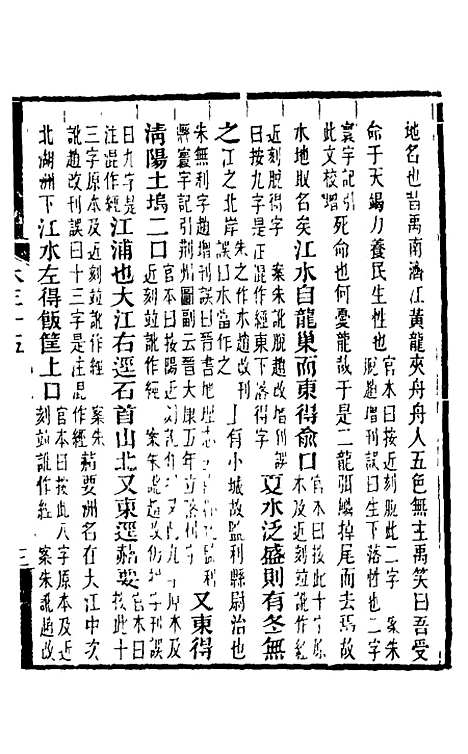 地名也昔禹南濟江黃龍夾舟舟人五色無主禹笑曰吾受
命于天竭力養民生性也官本曰按近刻脫此二字 案朱脫趙增刊誤曰生下落性也二字
寰宇記引此文校增死命也何憂龍哉于是二龍弭鱗掉尾而去焉故
水地取名矣江水自龍巢而東得俞口官本曰按此十字原本及近刻竝訛作經
近刻脫得字 案朱訛脫趙改增刊誤曰按九字是注混作經東下落得字夏水泛盛則有冬無
之江之北岸朱之作水趙改刊誤曰水當作之上有小城故監利縣尉治也
朱無利字趙增刊誤曰晉書地理志有監利縣寰宇記引荊州圖副云晉太康五年立又東得
清陽土塢二口官本曰按陽近刻訛作 字原本及近刻竝訛作經 案朱訛趙改仍 刊誤
曰九字是注混作經江浦也大江右逕石首山北又東逕赭要官本曰按此十
三字原本及近刻竝訛作經 案朱訛趙改刊誤曰十三字是注混作經赭要洲名在大江中次
北湖洲下江水左得飯筐上口官本曰按此八字原本及近刻竝訛作經 案朱訛趙改
水三十五
三